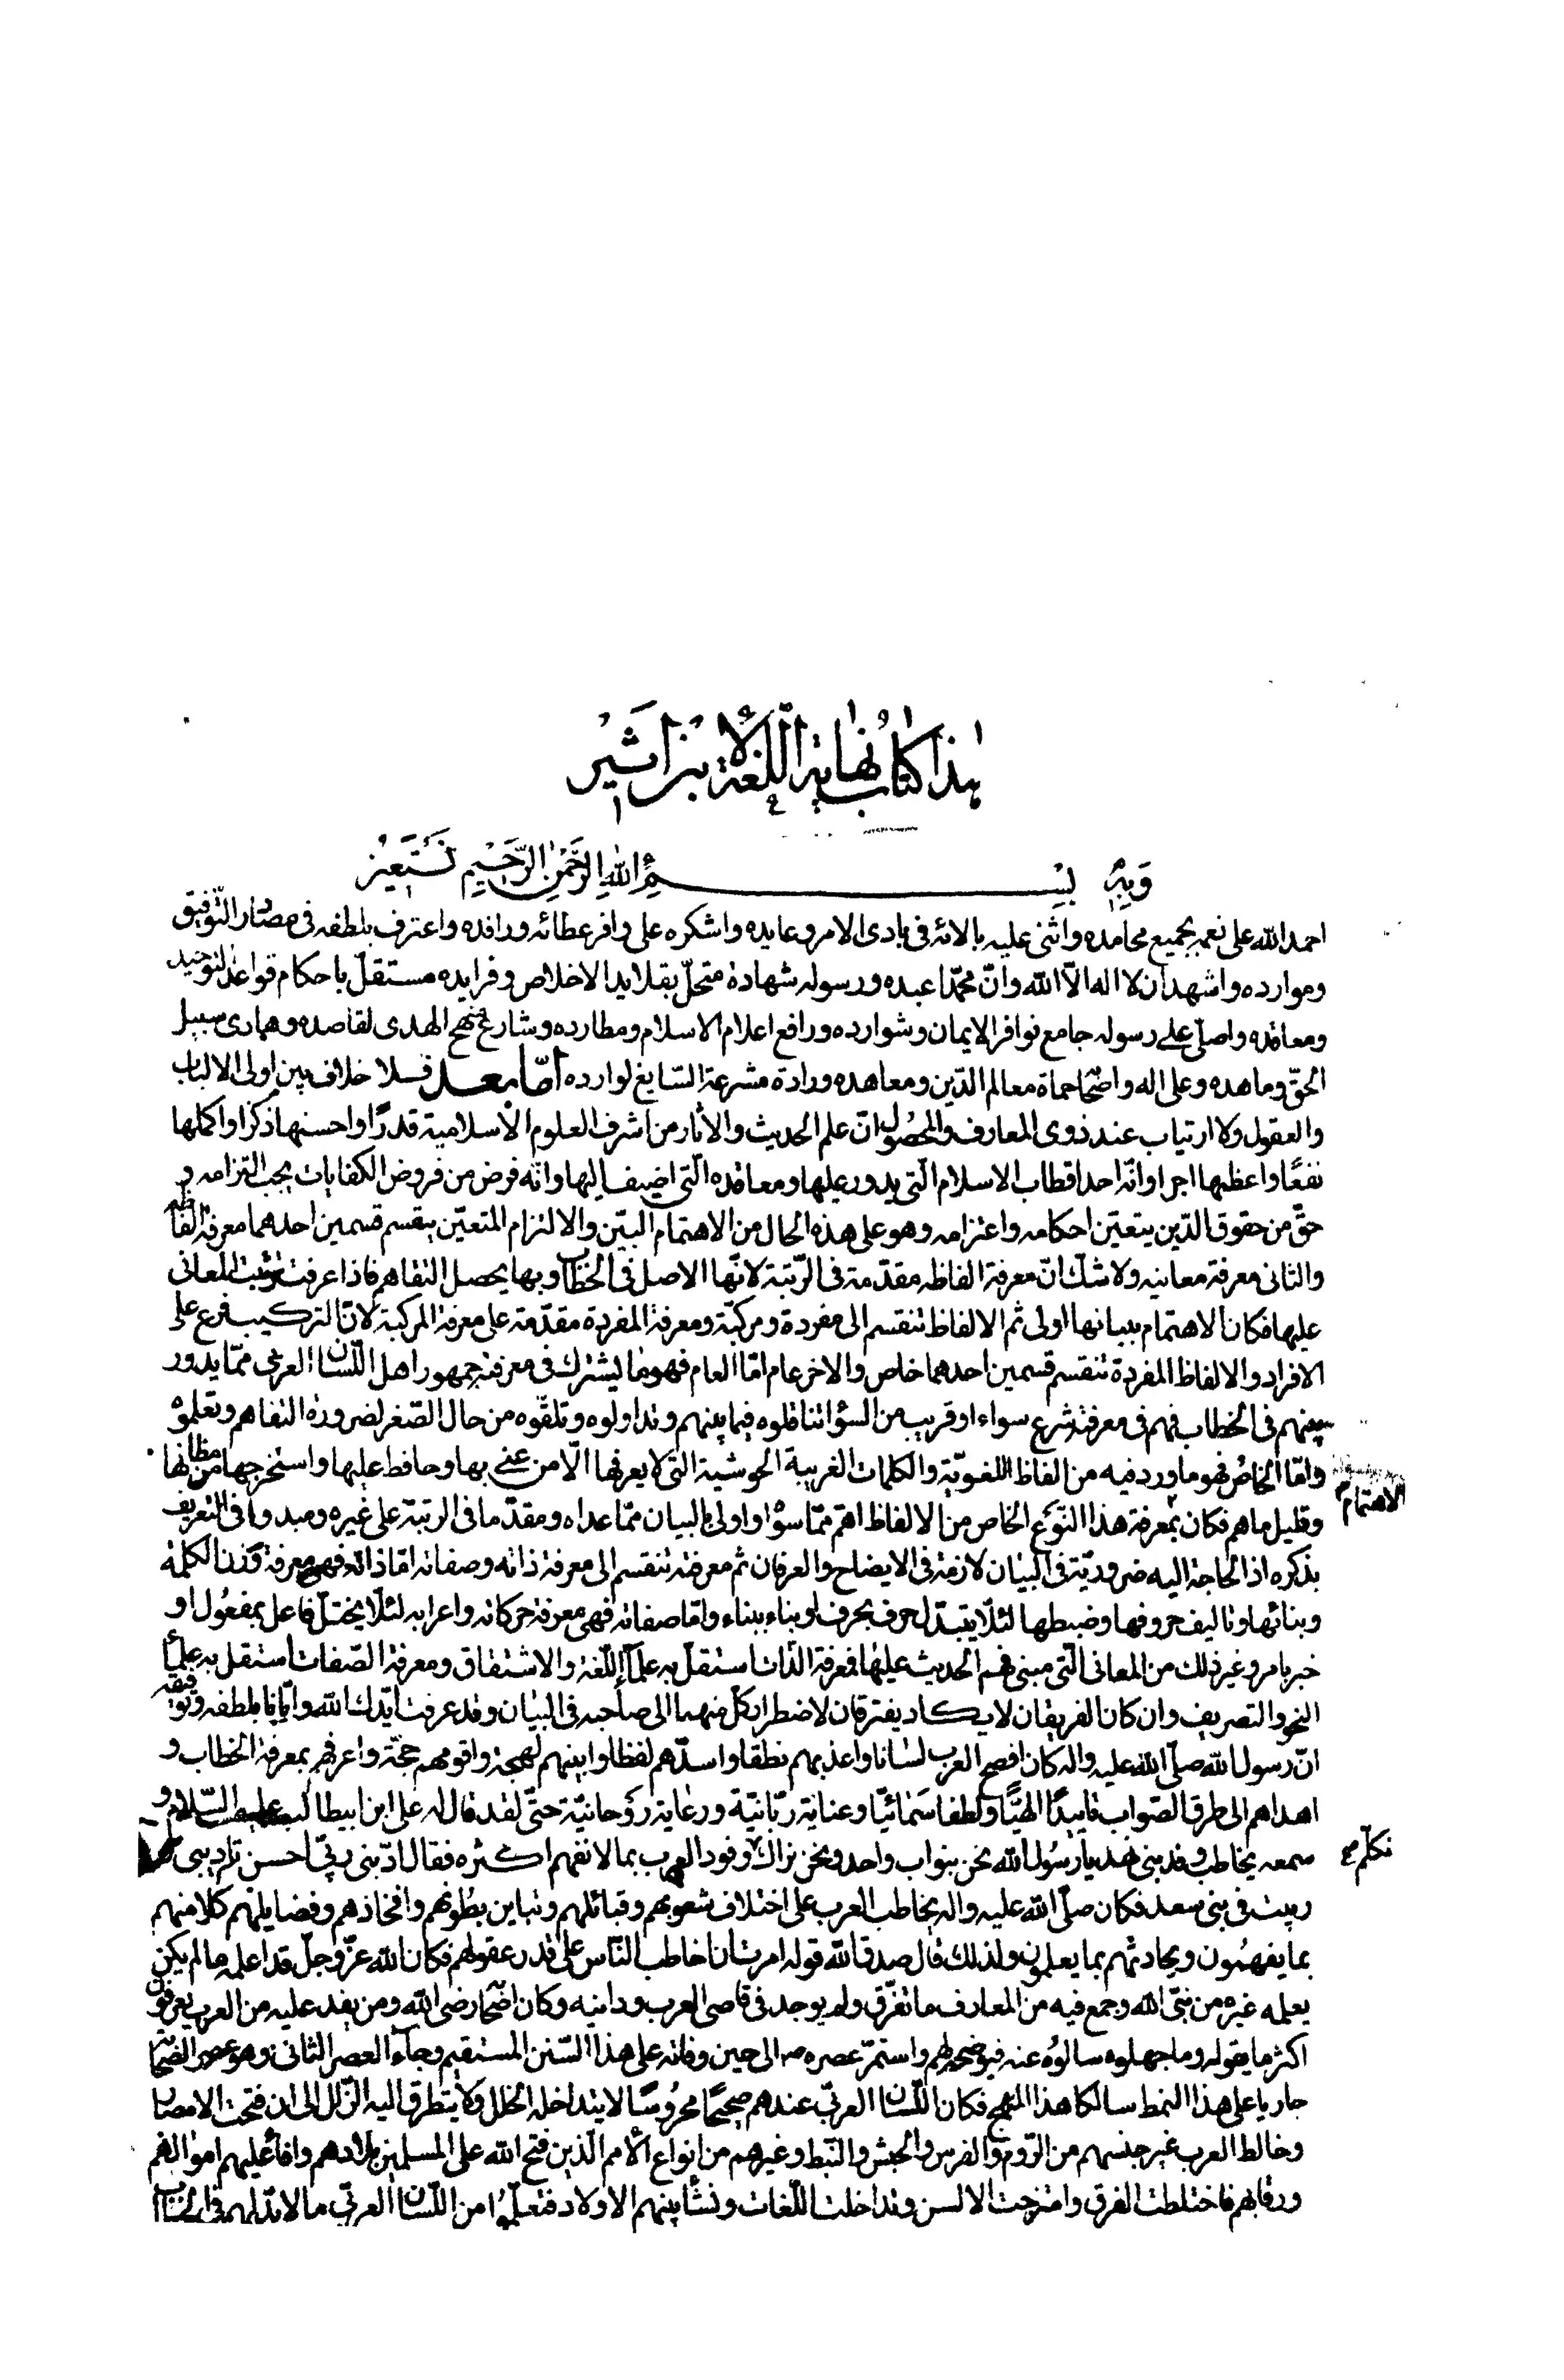 هذا كتاب نهاية اللغة لابن اثير
وبه بسم الله الرحمن الرحيم نستعين
احمد الله على نعمه بجميع محامده واثنى عليه بالائه فى بادى الامر وعايده واشكره على وافر عطائه ورافده واعترف بلطفه فى مصادر التوفيق
وموارده واشهد ان لا اله الّا الله وانّ محمّدا عبده ورسوله شهادة متحلّ بقلايد الاخلاص وفرايده مستقلّ باحكام قواعد التوحيد
ومعاقده واصلّى على رسوله جامع نوافر الايمان وشوارده ورافع اعلام الاسلام ومطارده وشارع نهج الهدى لقاصده وهادى سبيل
الحقّ وماهده وعلى اله واصحابه حماة معالم الدّين ومعاهده ورادة مشرعة السّايغ لوارده امّا بعد فلا خلاف بين اولى الالباب
والعقول ولا ارتياب عند ذوى المعارف والمحصول انّ علم الحديث والأثار من اشرف العلوم الاسلامية قدرًا واحسنها ذكرا واكملها
نفعًا واعظمها اجرا وانّه احد اقطاب الاسلام الّتى يدور عليها ومعاقده الّتى اضيف اليها وانّه فرض من فروض الكفايات يجب التزامه و
حقّ من حقوق الدّين يتعيّن احكامه واعتزامه وهو على هذه الحال من الاهتمام البيّن والالتزام المتعيّن ينقسم قسمين احدهما معرفة الفاظه
والثانى معرفة معانيه ولا شكّ انّ معرفة الفاظه مقدّمة فى الرّتبة لانّها الاصل فى الخطاب وبها يحصل التفاهم فاذا عرفت ترتّبت المعانى
عليها فكان الاهتمام ببيانها اولى ثم الالفاظ تنقسم الى مفردة ومركبّة ومعرفة المفردة مقدّمة على معرفة المركبة لانّ التركيب فرع على
الافراد والالفاظ المفردة تنقسم قسمين احدهما خاص والاخر عام امّا العام فهو ما يشترك فى معرفته جمهور اهل اللّسان العربى ممّا يدور
بينهم فى الخطاب فهم فى معرفته شرع سواء او قريب من السّواء تناقلوه فيما بينهم وتداولوه وتلقّوه من حال الصّغر لضرورة التفاهم وتعلموه
وامّا الخاص فهو ما ورد فيه من الفاظ اللغويّة والكلمات الغريبة الحوشية التى لا يعرفها الّا من عنى بها وحافظ عليها واستخرجها من مظانها
وقليل ما هم فكان بمعرفة هذا النّوع الخاص من الالفاظ اهمّ ممّا سواه واولى بالبيان ممّا عداه ومقدّما فى الرتبة على غيره ومبدوا فى التعريف
الاهتمام
بذكره اذ الحاجة اليه ضروريّة فى البيان لازمة فى الايضاح والعرفان ثم معرفته تنقسم الى معرفة ذاته وصفاته امّا ذاته فهى معرفة وزن الكلمة
وبنائها وتاليف حروفها وضبطها لئلّا يتبدّل حرف بحرف او بناء ببناء وامّا صفاته فهى معرفة حركاته واعرابه لئلّا يختلّ فاعل بمفعول او
خبر بامر وغير ذلك من المعانى الّتى مبنى فهم الحديث عليها فمعرفة الذّات استقلّ به علماء اللّغة والاشتقاق ومعرفة الصّفات استقل به علماء
النحو والتصريف وان كان الفريقان لا يكاد يفترقان لاضطرار كلّ منهما الى صاحبه فى البيان وقد عرفت ايّدك الله وايّانا بلطفه وتوفيقه
انّ رسول الله صلّى الله عليه واله كان افصح العرب لسانا واعذبهم نطقا واسدّهم لفظا وابينهم لهجة واقومهم حجّة واعرفهم بمعرفة الخطاب و
اهداهم الى طرق الصّواب تاييدًا الهيًّا ولطفا سمائيّا وعناية ربّانيّة ورعاية روحانيّة حتّى لقد قال له على ابن ابيطالب عليه السّلام و
سمعه يخاطب وفد بنى نهد يا رسول الله نحن بنو اب واحد ونحن نراك وفود العرب بما لا نفهم اكثره فقال ادّبنى ربّى احسن تاديبى
تكلّم
ربيت فى بنى سعد فكان صلّى الله عليه واله يخاطب العرب على اختلاف شعوبهم وقبائلهم وتباين بطونهم وافخاذهم وفضايلهم كلا منهم
بما يفهمون ويحادثهم بما يعلمون ولذلك قال صدق الله قوله امرت ان اخاطب النّاس على قدر عقولهم فكان الله عزّ وجلّ قد اعلمه ما لم يكن
يعلمه غيره من نبىّ الله وجمع فيه من المعارف ما تفرّق ولم يوجد فى قاصى العرب ودانيه وكان اصحابه رضى الله ومن يفد عليه من العرب يعرفون
اكثر ما يقوله وما جهلوه سالوه عنه فيوضحه لهم واستمرّ عصره ص الى حين وفاته على هذا السّنن المستقيم وجاء العصر الثانى وهو عصر الصّحابة
جاريا على هذا النمط سالكا هذا المنهج فكان اللّسان العربىّ عندهم صحيحًا محروسًا لا يتداخله الخلل ولا يتطرق اليه الزّلل الى ان فتحت الامصار
وخالط العرب غير جنسهم من الرّوم والفرس والحبش والنّبط وغيرهم من انواع الأمم الّذين فتح الله على المسلمين بلادهم وافاء عليهم اموالهم
ورقابهم فاختلطت الفرق وامتزجت الالسن وتداخلت اللّغات ونشأ بينهم الاولاد فتعلّموا من اللّسان العربىّ ما لا بدّ لهم فى الخطاب